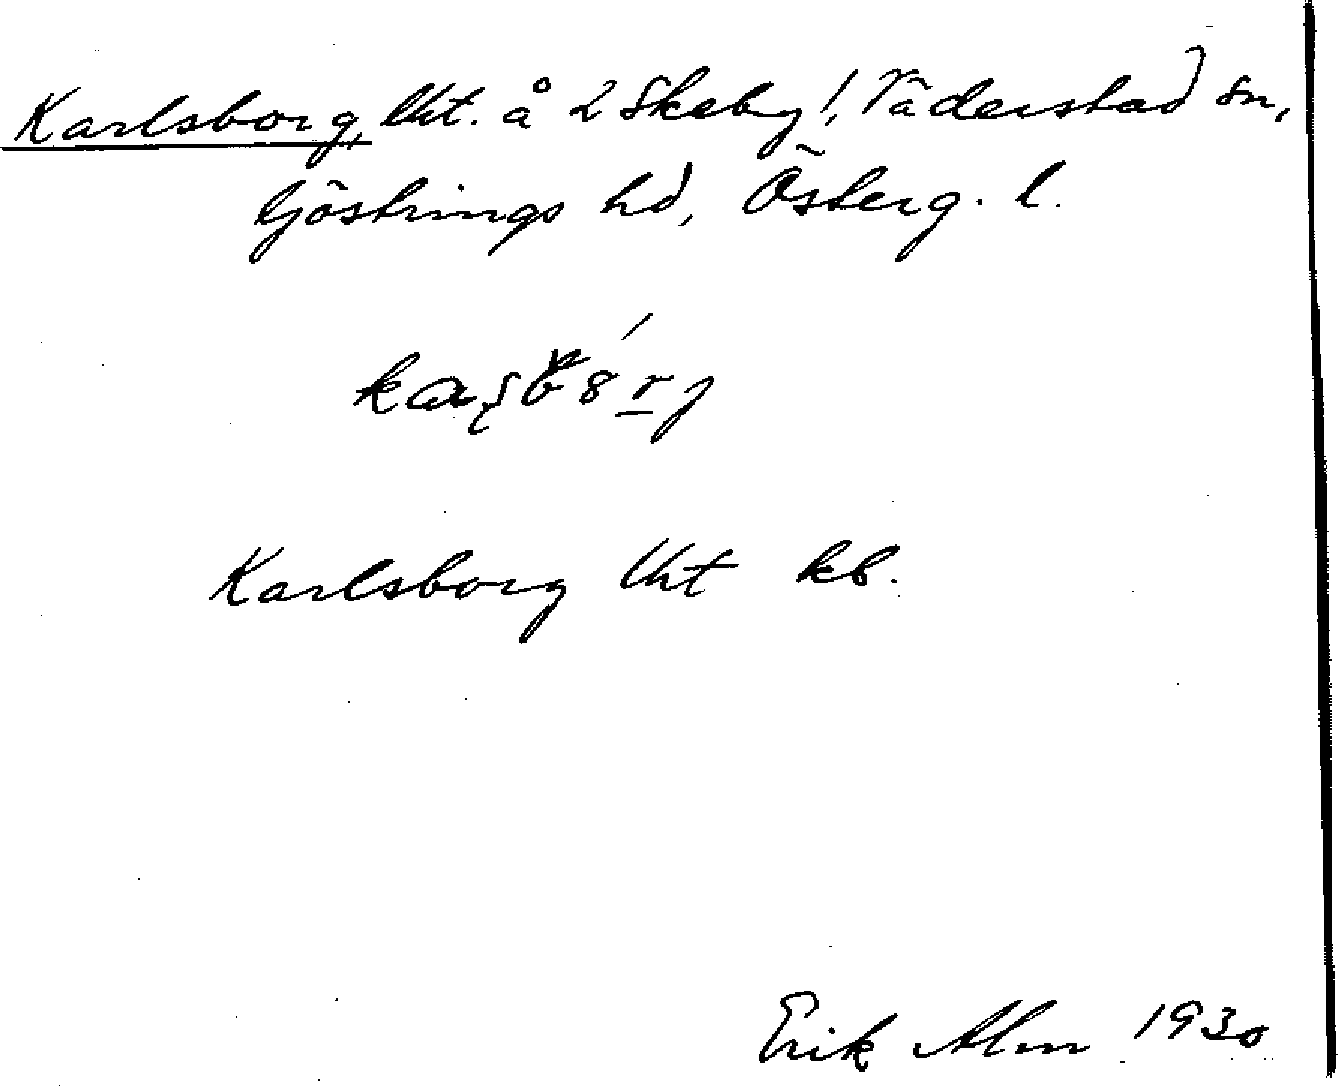 Karlsborg, lht. å 2 Skeby!, Väderstad sn,
Göstrings hd, Österg. l.
Karlsborg lht kb.
Erik Alm 1930